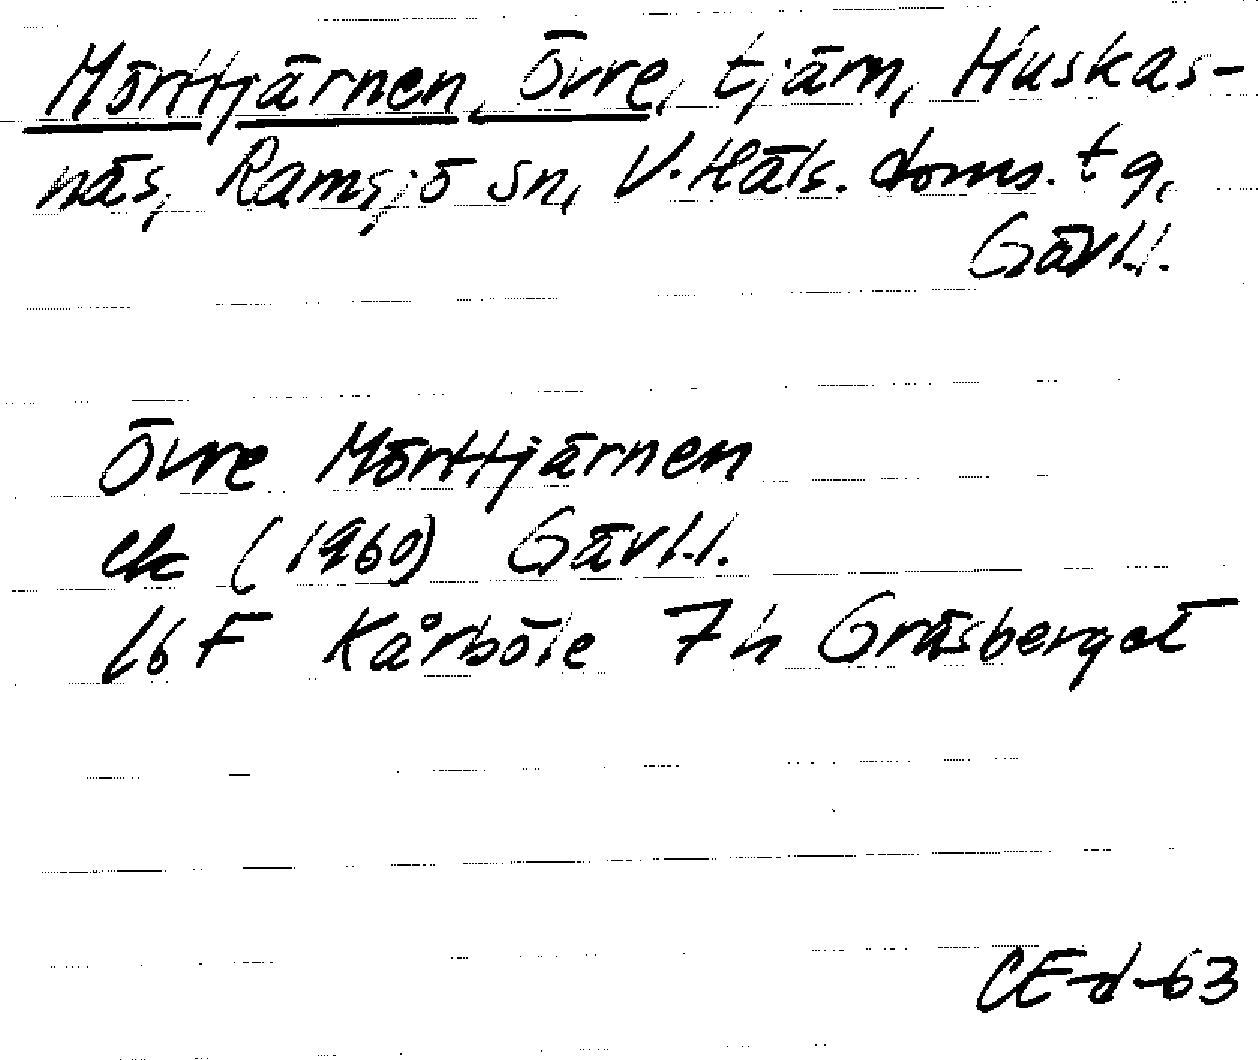 Mörttjärnen, Övre, tjärn, Huskas-
näs, Ramsjö sn, V. Häls. doms. tg,
Gävl.l.
Övre Mörttjärnen
ek (1960) Gävl.l.
16 F Kårböle 7h Gräsberget
CE-d-63